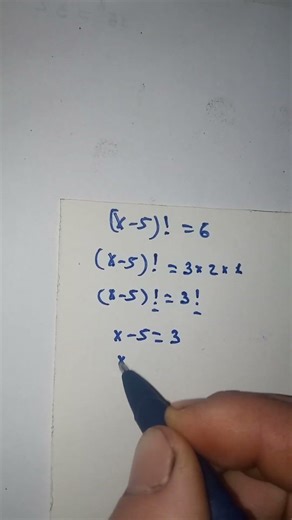 (x-5)! = 6
(x-5)! = 3×2×1
(x-5)! = 3!
x-5=3
x